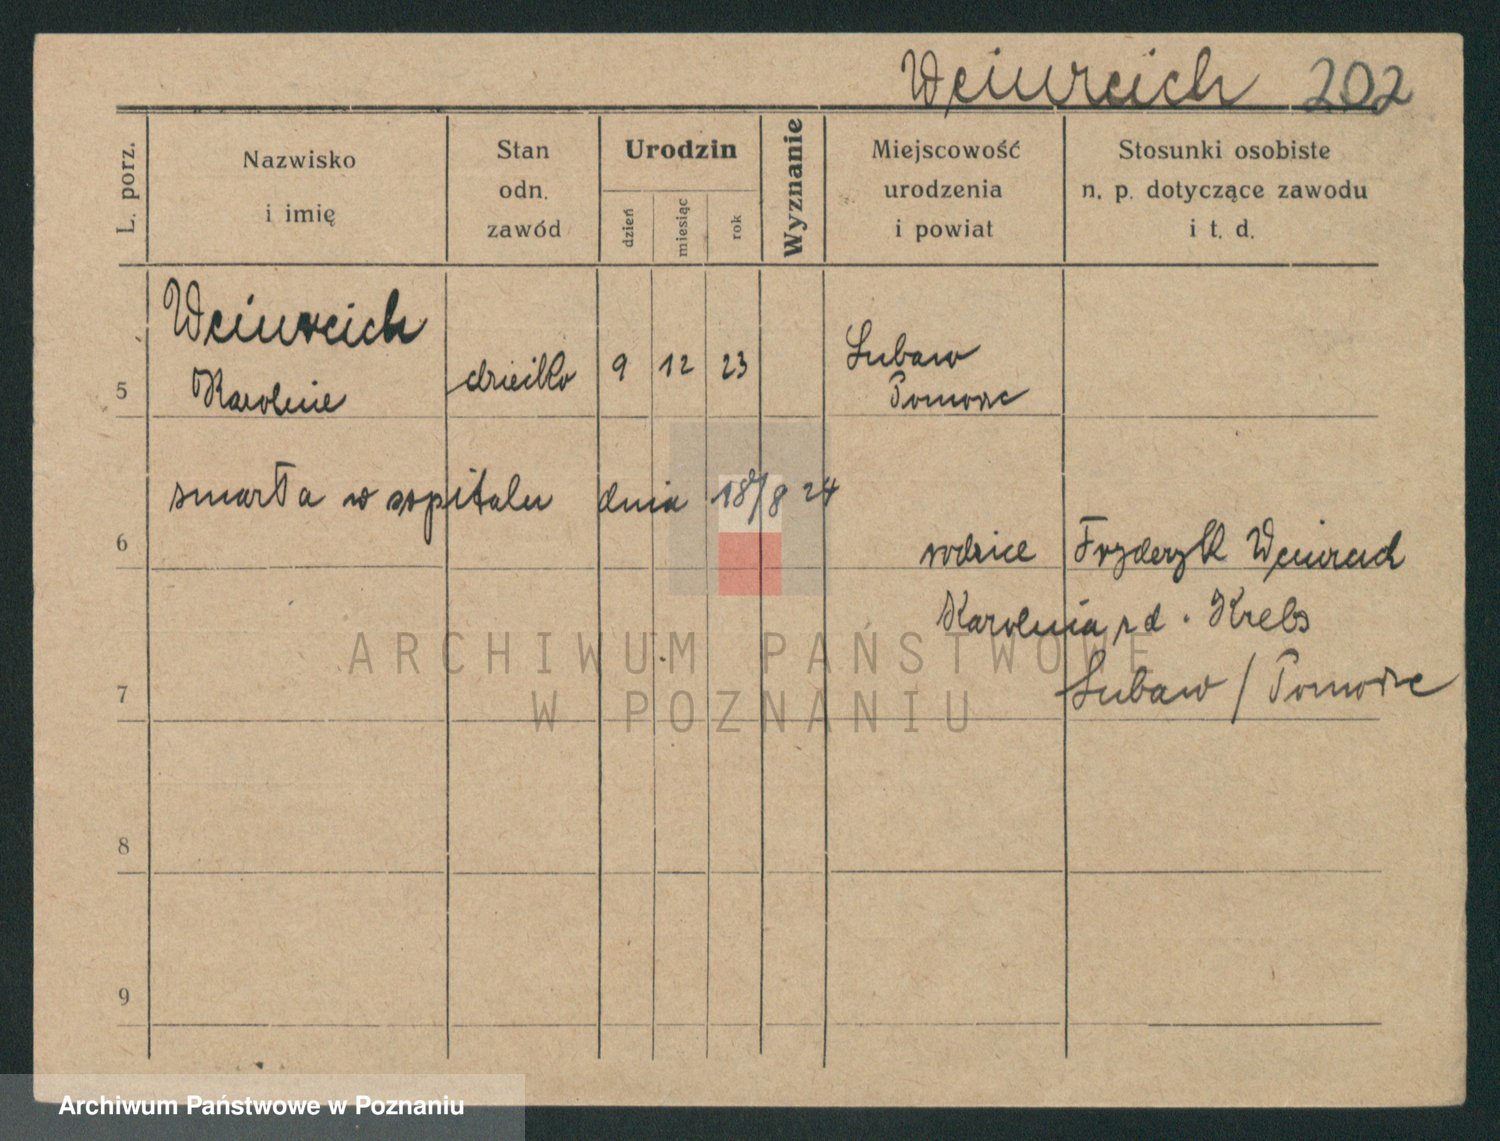 Weinreich 202
L. porz.
Nazwisko
i imię
Stan
odn.
zawód
Urodzin
dzień
miesiąc
rok
Wyznanie
Miejscowość
urodzenia
i powiat
Stosunki osobiste
n. p. dotyczące zawodu
i t. d.
Weinreich
5 Karolinie dziecko 9 12 23 Lubaw
Pomorze
smarła w szpitalu dnia 18/8 24
6
rodzice Fryderyk Weinreich
Karolinia rd. Krebs
7 Lubaw / Pomorze
8
9
ARCHIWUM PAŃSTWOWE
W POZNANIU
Archiwum Państwowe w Poznaniu